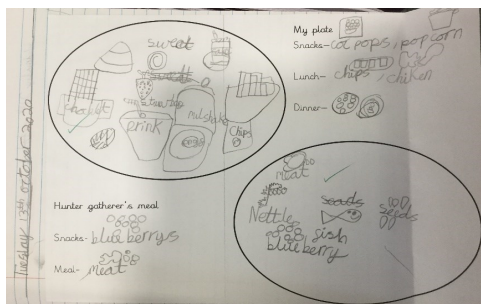 Tuesday 13th october 2020
sweet
chocolate
milkshake
Drink
Chips
My plate
Snacks- coc pops, popcorn
Lunch- chips chiken
Dinner-
Hunter gatherer's meal
Snacks- blueberrys
Meal- meat
meat
Nettle
seads
seeds
fish
blueberry